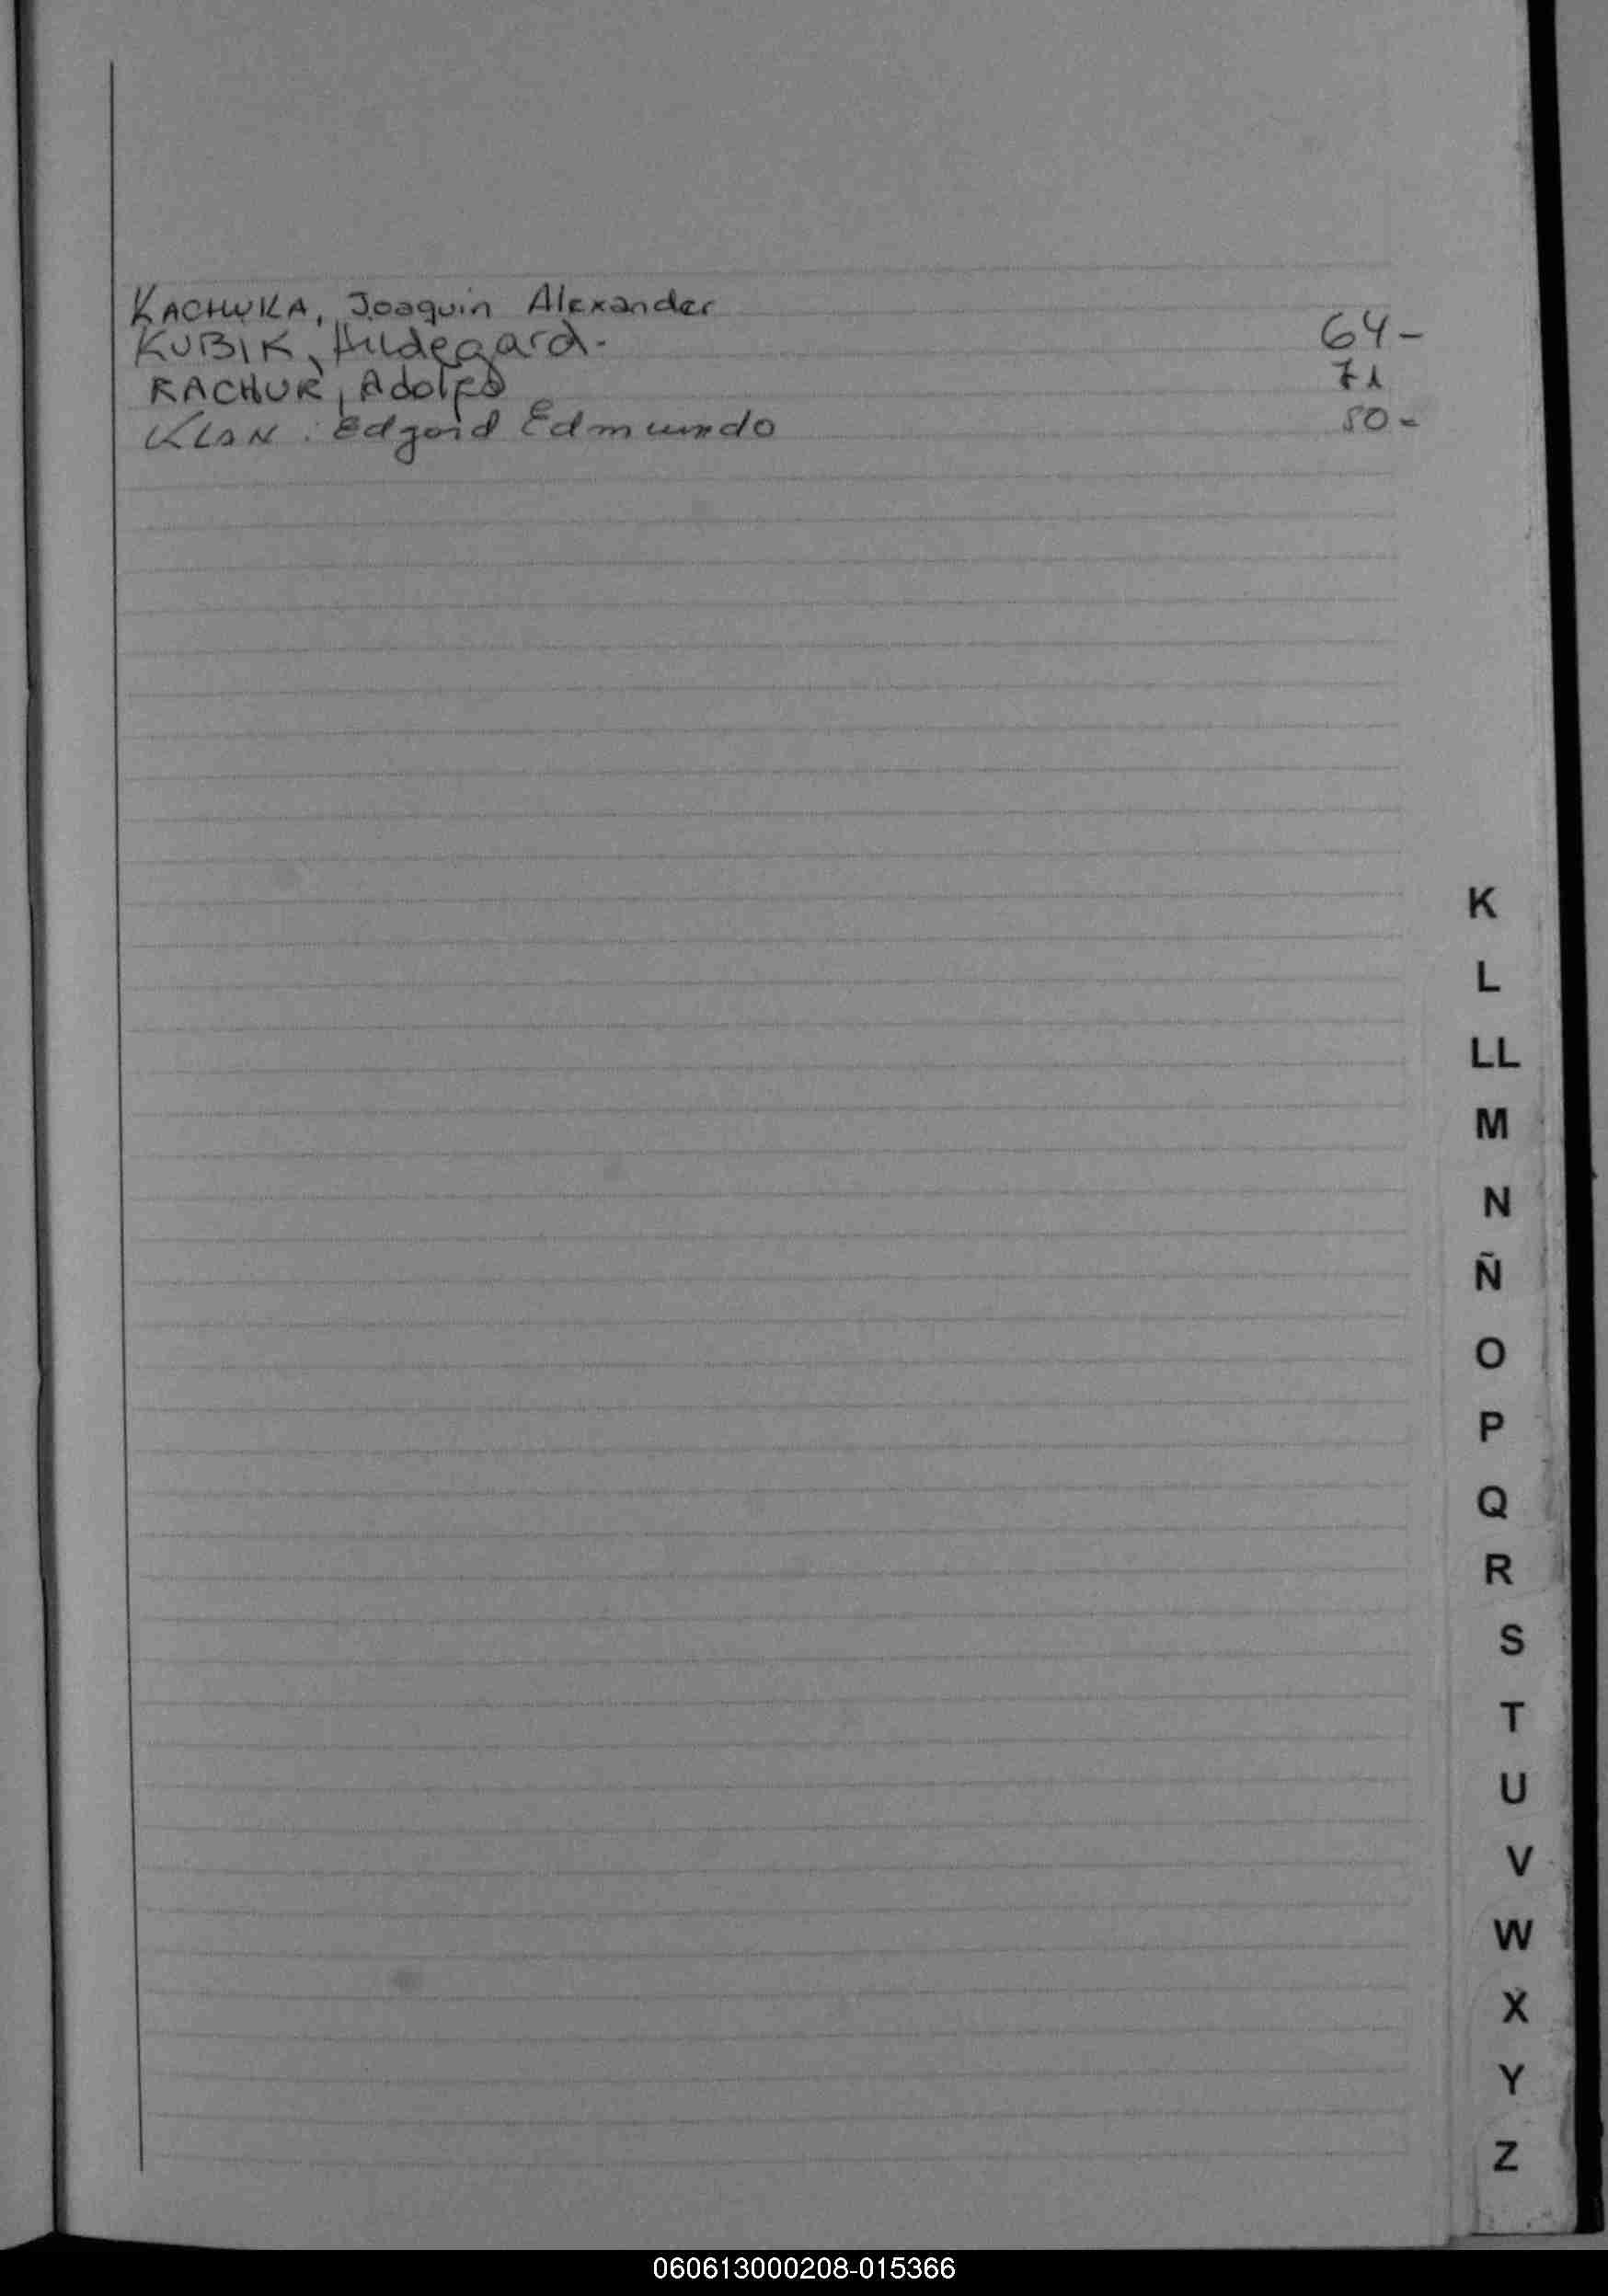 KACHUKA, Joaquin Alexander
KUBIK, Hildegard. 64-
KACHUR, Adolfo 71
KLAN. Edgard Edmundo 50-
K
L
LL
M
N
Ñ
O
P
Q
R
S
T
U
V
W
X
Y
Z
060613000208-015366